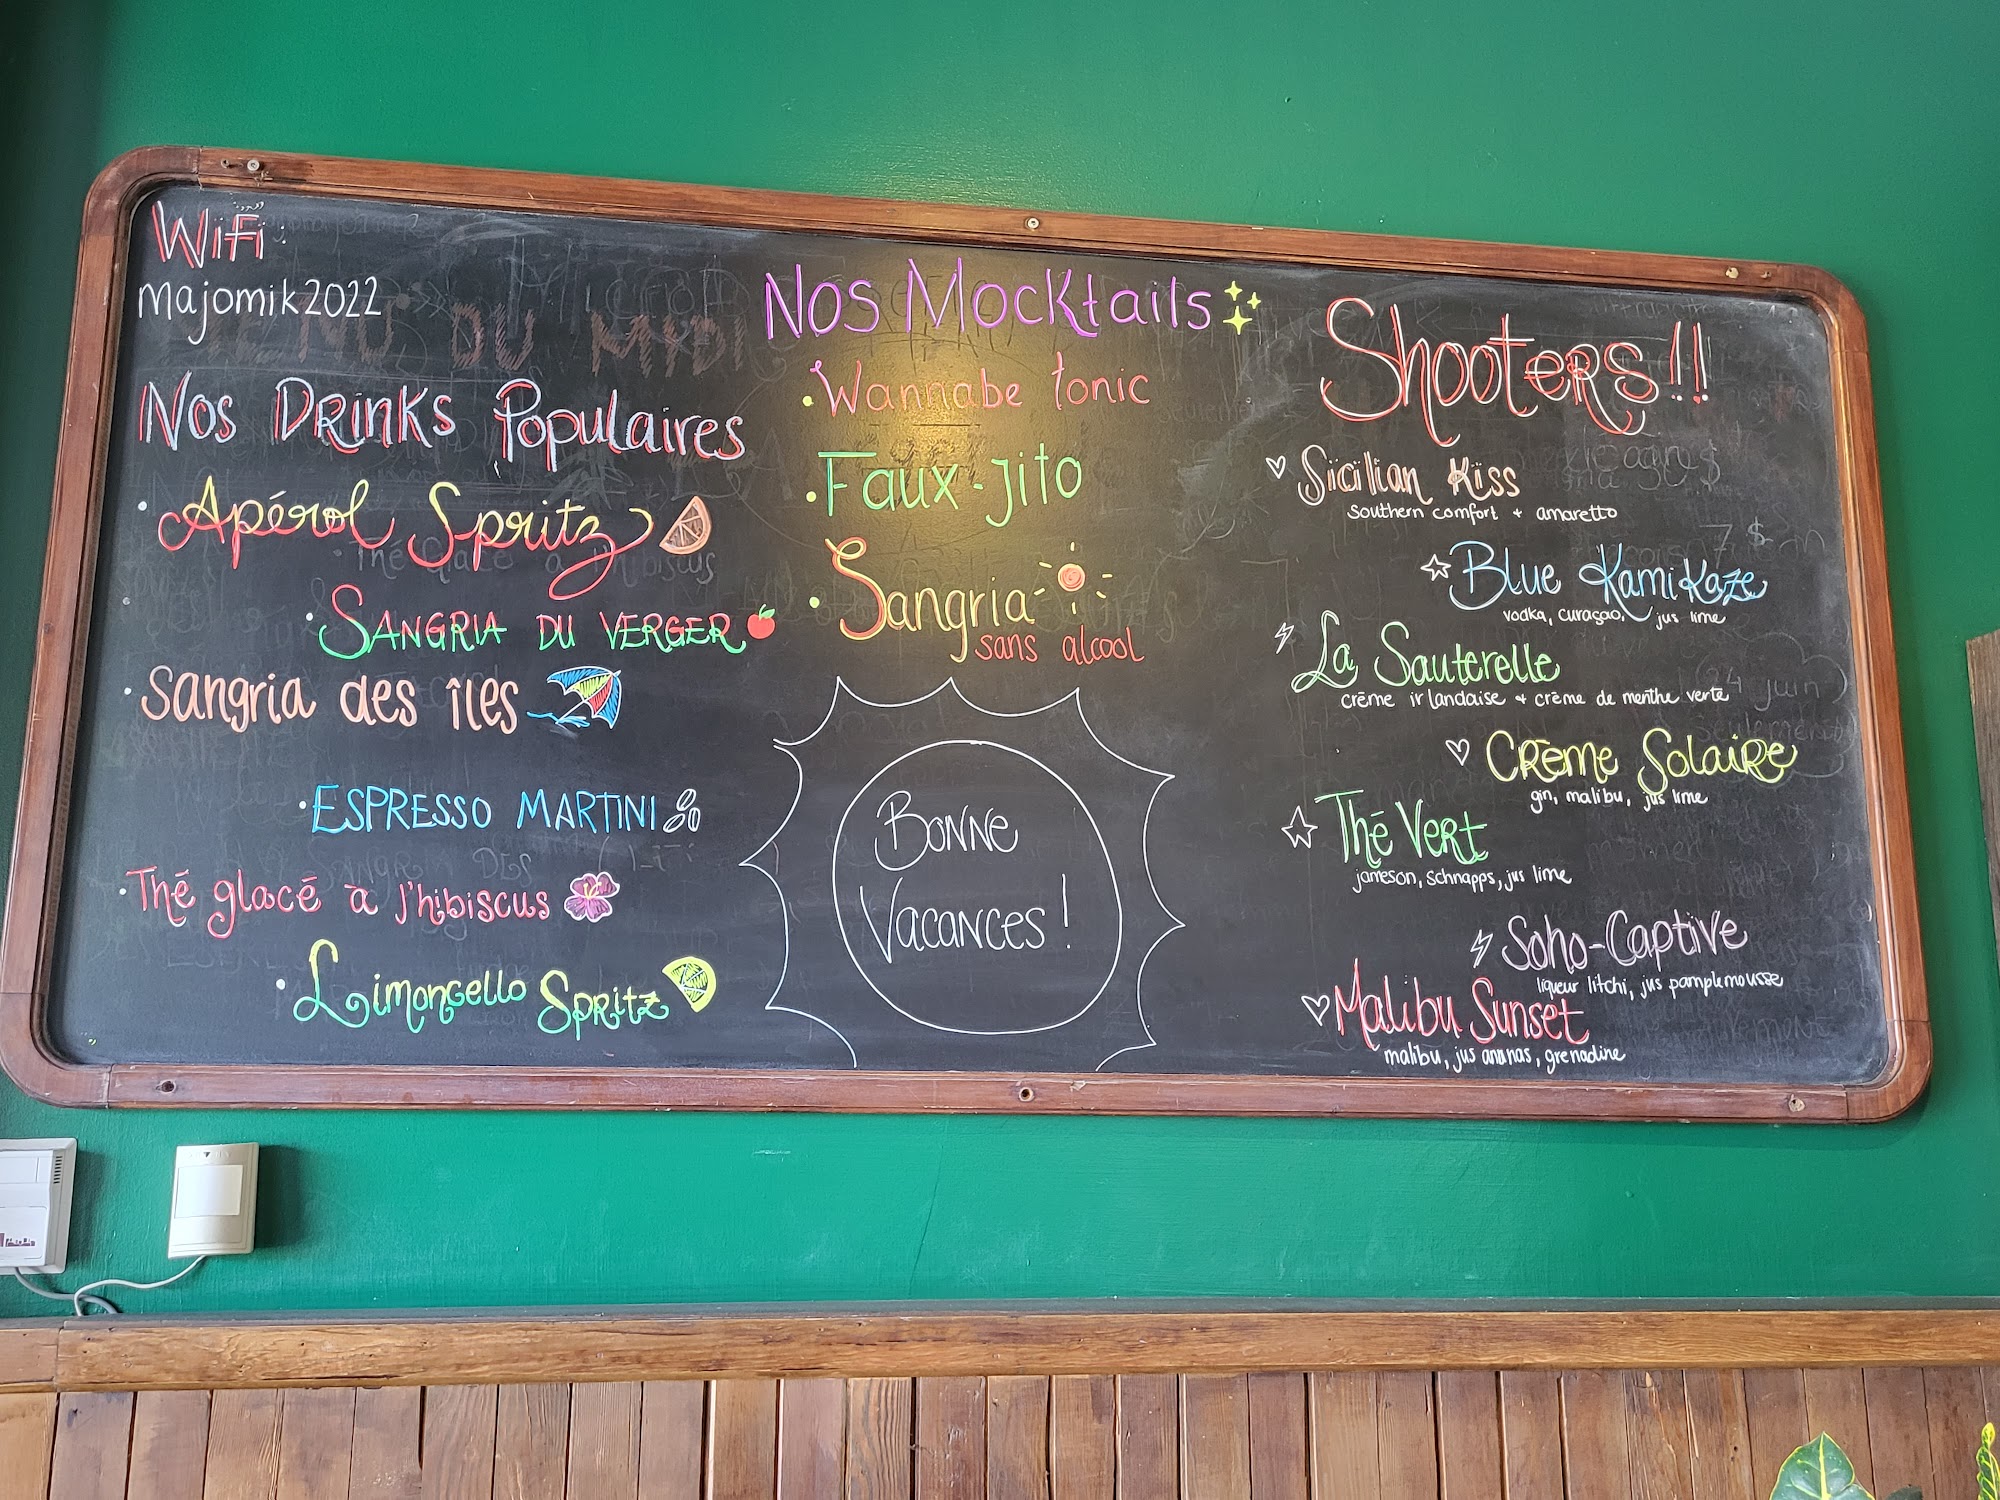 WiFi:
majomik2022
Nos Drinks Populaires
• Apérol Spritz
• Sangria du verger
• Sangria des îles
• Espresso Martini
• Thé glacé à l'hibiscus
• Limoncello Spritz
Nos Mocktails
• Wannabe tonic
• Faux-jito
• Sangria
sans alcool
Bonne
Vacances!
Shooters!!
Sicilian Kiss
southern comfort + amaretto
Blue Kamikaze
vodka, curaçao, jus lime
La Sauterelle
crème irlandaise + crème de menthe verte
Crème Solaire
gin, malibu, jus lime
Thé Vert
jameson, schnapps, jus lime
Soho-Captive
liqueur litchi, jus pamplemousse
Malibu Sunset
malibu, jus ananas, grenadine